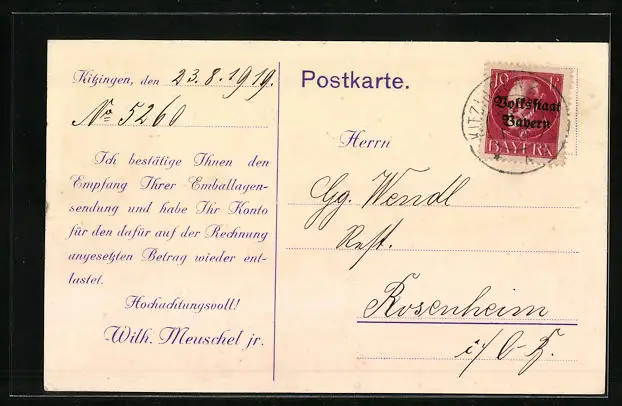 Kitzingen, den 23.8.1919.
No 5260
Ich bestätige Ihnen den
Empfang Ihrer Emballagen-
sendung und habe Ihr Konto
für den dafür auf der Rechnung
angesetzten Betrag wieder ent-
lastet.
Hochachtungsvoll!
Wilh. Meuschel jr.
Postkarte.
10
Volksstaat
Bayern
BAYERN
KITZ
Herrn
Gg. Wendl
Rest.
Rosenheim